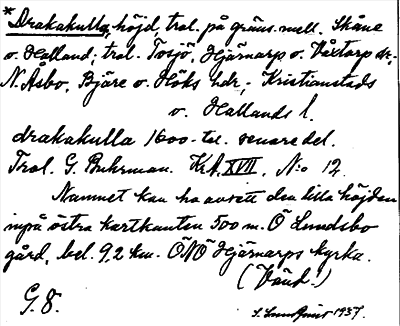 * Drakakulla, höjd, trol. på gräns mell. Skåne
o. Halland; trol. Tosjö, Hjärnarp o. Våxtorp sk;
N. Åsbo, Bjäre o. Höks hdr; Kristianstads
o. Hallands l.
drakakulla 1600-tal. senare del.
Trol. G. Buhrman. KrA. XVII, N:o 12.
Namnet kan ha avsett den lilla höjden
inpå östra kartkanten 500 m. Ö Lundsbo
gård, bel. 9,2 km. ÖNÖ Hjärnarps kyrka.
(Vänd.)
G. 8. 1937.